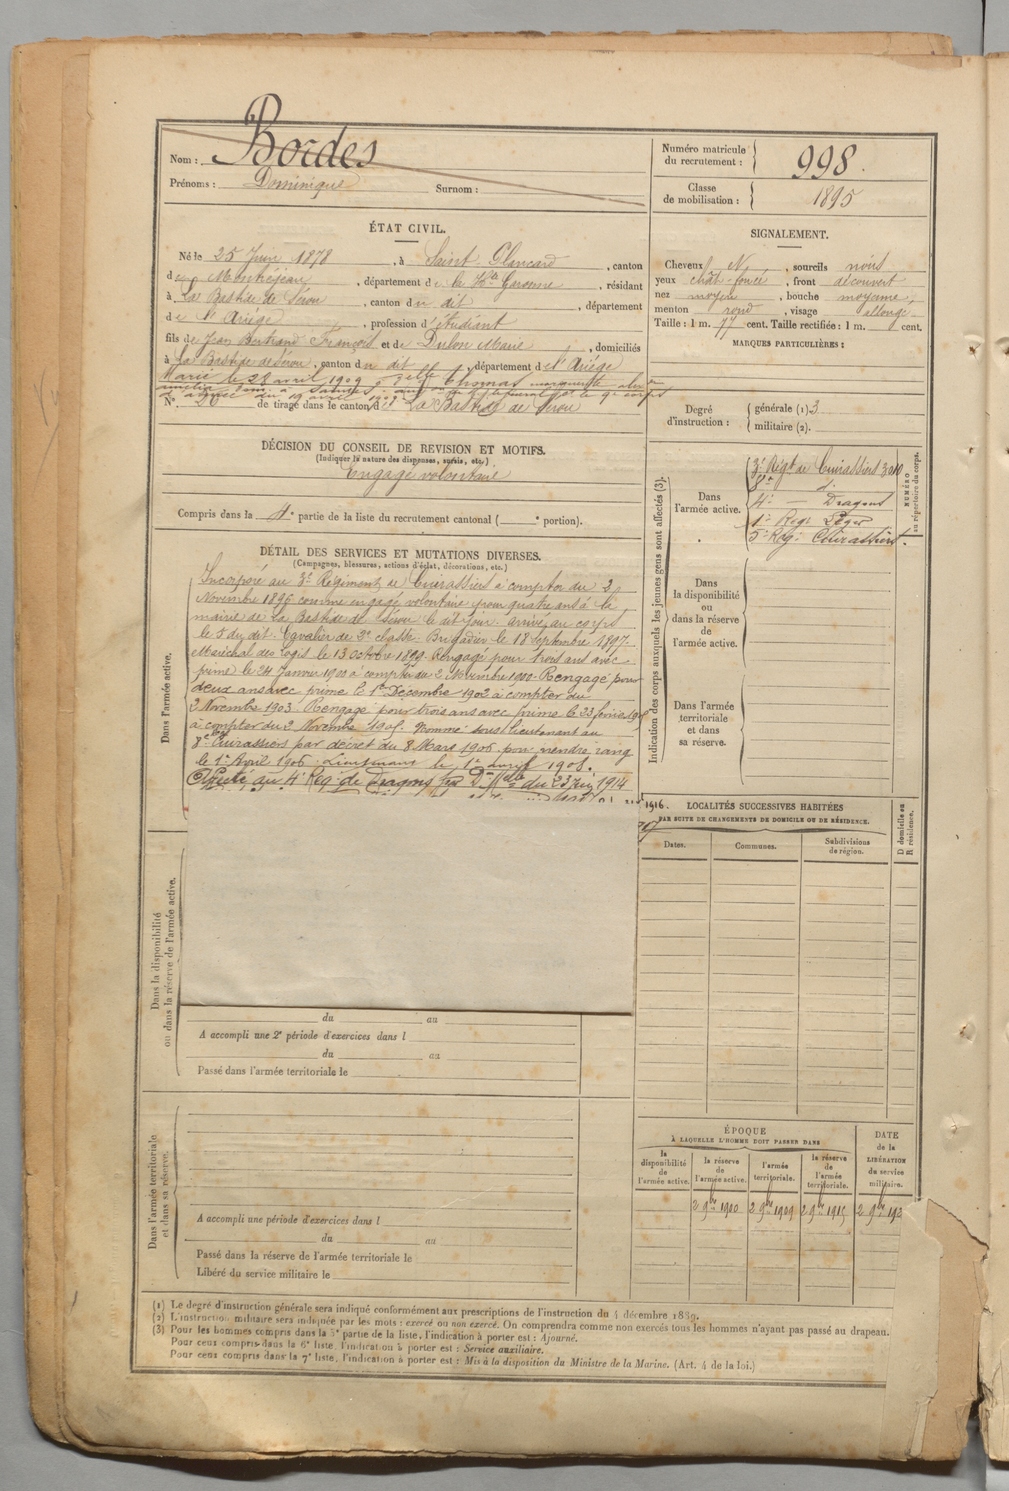 Nom : Bordes
Prénoms : Dominique Surnom :
Numéro matricule
du recrutement : 998.
Classe
de mobilisation : 1895
ÉTAT CIVIL.
Né le 25 Juin 1878, à Saint-Plancard, canton
de Montréjeau, département de la Hte Garonne, résidant
à La Bastide de Sérou, canton du dit, département
de l'Ariége, profession d'étudiant
fils de Jean Bertrand François et de Dulon Marie, domiciliés
à La Bastide de Sérou, canton du dit, département de l'Ariége
Marié le 28 avril 1909 à Delle Thomas
No 20 de tirage dans le canton de La Bastide de Sérou
SIGNALEMENT.
Cheveux N, sourcils noirs
yeux chât-foncé, front découvert
nez moyen, bouche moyenne,
menton rond, visage allongé
Taille : 1 m. 77 cent. Taille rectifiée : 1 m. cent.
MARQUES PARTICULIÈRES :
Degré
d'instruction :
générale (1) 3
militaire (2).
DÉCISION DU CONSEIL DE REVISION ET MOTIFS.
(Indiquer la nature des dispenses, sursis, etc.)
Engagé volontaire
Compris dans la 4e partie de la liste du recrutement cantonal ( e portion).
DÉTAIL DES SERVICES ET MUTATIONS DIVERSES.
(Campagnes, blessures, actions d'éclat, décorations, etc.)
Dans l'armée active.
Incorporé au 3e Régiment de Cuirassiers à compter du 2
Novembre 1896 comme engagé volontaire pour quatre ans à la
mairie de La Bastide de Sérou le dit jour. arrivé au corps
le 5 du dit. Cavalier de 2e classe. Brigadier le 18 Septembre 1897.
Maréchal des logis le 13 Octobre 1899. Rengagé pour trois ans avec
prime le 24 Janvier 1900 à compter du 2 Novembre 1900. Rengagé pour
deux ans avec prime le 1er Décembre 1902 à compter du
2 Novembre 1903. Rengagé pour trois ans avec prime le 23 février
à compter du 2 Novembre 1905. Nommé sous lieutenant au
8e Cuirassiers par décret du 8 Mars 1906 pour prendre rang
le 1er Avril 1906. Lieutenant le 1er avril 1908.
Affecté au 4e Rég. de Dragons par Don Mlle du 23 1914
1916.
Indication des corps auxquels les jeunes gens sont affectés (3).
Dans
l'armée active.
3e Régt de Cuirassiers
8e d°
4e — Dragons
1er Regt Léger
5e Reg. Cuirassiers.
NUMÉRO
au répertoire du corps.
Dans
la disponibilité
ou
dans la réserve
de
l'armée active.
Dans l'armée
territoriale
et dans
sa réserve.
LOCALITÉS SUCCESSIVES HABITÉES
PAR SUITE DE CHANGEMENTS DE DOMICILE OU DE RÉSIDENCE.
Dates. Communes. Subdivisions
de région.
D domicile ou
R résidence.
Dans la disponibilité
ou dans la réserve de l'armée active.
du au
A accompli une 2e période d'exercices dans l
du au
Passé dans l'armée territoriale le
Dans l'armée territoriale
et dans sa réserve.
A accompli une période d'exercices dans l
du au
Passé dans la réserve de l'armée territoriale le
Libéré du service militaire le
ÉPOQUE
À LAQUELLE L'HOMME DOIT PASSER DANS
la
disponibilité
de
l'armée active.
la réserve
de
l'armée active.
l'armée
territoriale.
la réserve
de
l'armée
territoriale.
DATE
de la
LIBÉRATION
du service
militaire.
2 9bre 1900 2 9bre 1909 2 9bre 1915 2 9bre 192
(1) Le degré d'instruction générale sera indiqué conformément aux prescriptions de l'instruction du 4 décembre 1889.
(2) L'instruction militaire sera indiquée par les mots : exercé ou non exercé. On comprendra comme non exercés tous les hommes n'ayant pas passé au drapeau.
(3) Pour les hommes compris dans la 5e partie de la liste, l'indication à porter est : Ajourné.
Pour ceux compris dans la 6e liste, l'indication à porter est : Service auxiliaire.
Pour ceux compris dans la 7e liste, l'indication à porter est : Mis à la disposition du Ministre de la Marine. (Art. 4 de la loi.)